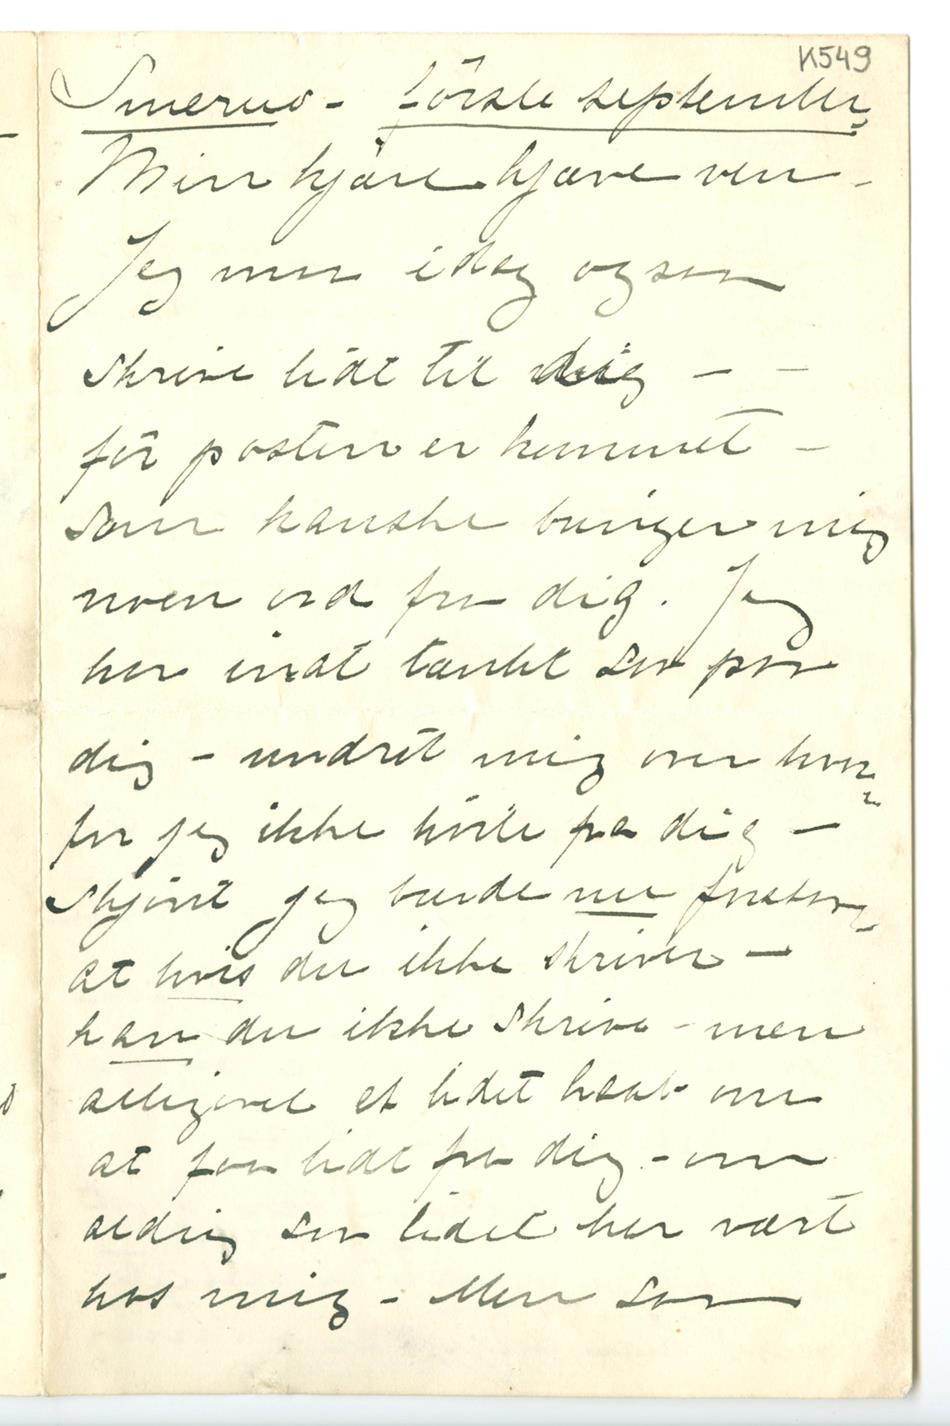 K549
Smerud - första september,
Min kjære kjære ven -
Jeg maa idag ogsaa
skrive lidt til dig - -
för posten er kommet -
som kanske bringer mig
noen ord fra dig. Jeg
har indt tænkt saa paa
dig - undret mig over hvor
for jeg ikke hörte fra dig -
skjönt jeg burde nu forstaa,
at hvis du ikke skriver -
kan du ikke skrive - men
alligevel et lidet haab om
at faa lidt fra dig - om
aldrig saa lidet har vært
hos mig - Men saa